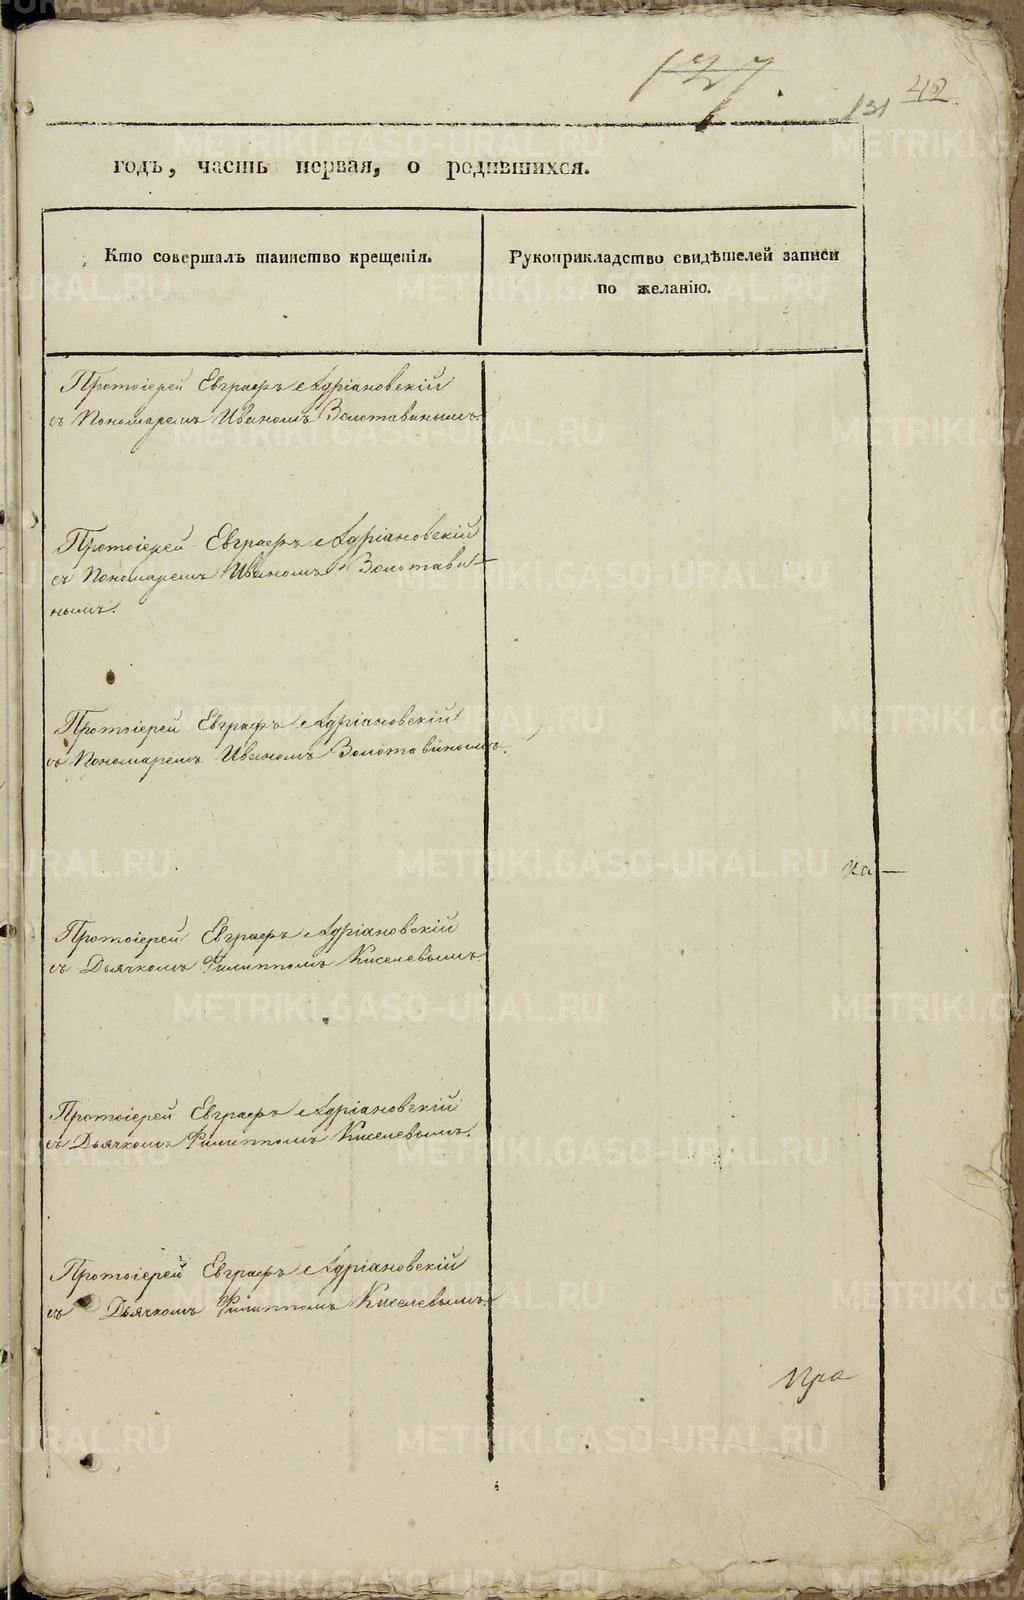 127
42.
131
годъ, часть первая, о родившихся.
Кто совершалъ таинство крещенія.
Рукоприкладство свидѣтелей записи
по желанію.
Протоіерей Евграфъ Адріановскій
съ Пономаремъ Иваномъ Золотавинымъ.
Протоіерей Евграфъ Адріановскій
съ Пономаремъ Иваномъ Золотави-
нымъ.
Протоіерей Евграфъ Адріановскій
съ Пономаремъ Иваномъ Золотавиномъ.
ка—
Протоіерей Евграфъ Адріановскій
съ Дьячкомъ Филиппомъ Киселевымъ.
Протоіерей Евграфъ Адріановскій
съ Дьячкомъ Филиппомъ Киселевымъ.
Протоіерей Евграфъ Адріановскій
съ Дьячкомъ Филиппомъ Киселевымъ.
METRIKI.GASO-URAL.RU